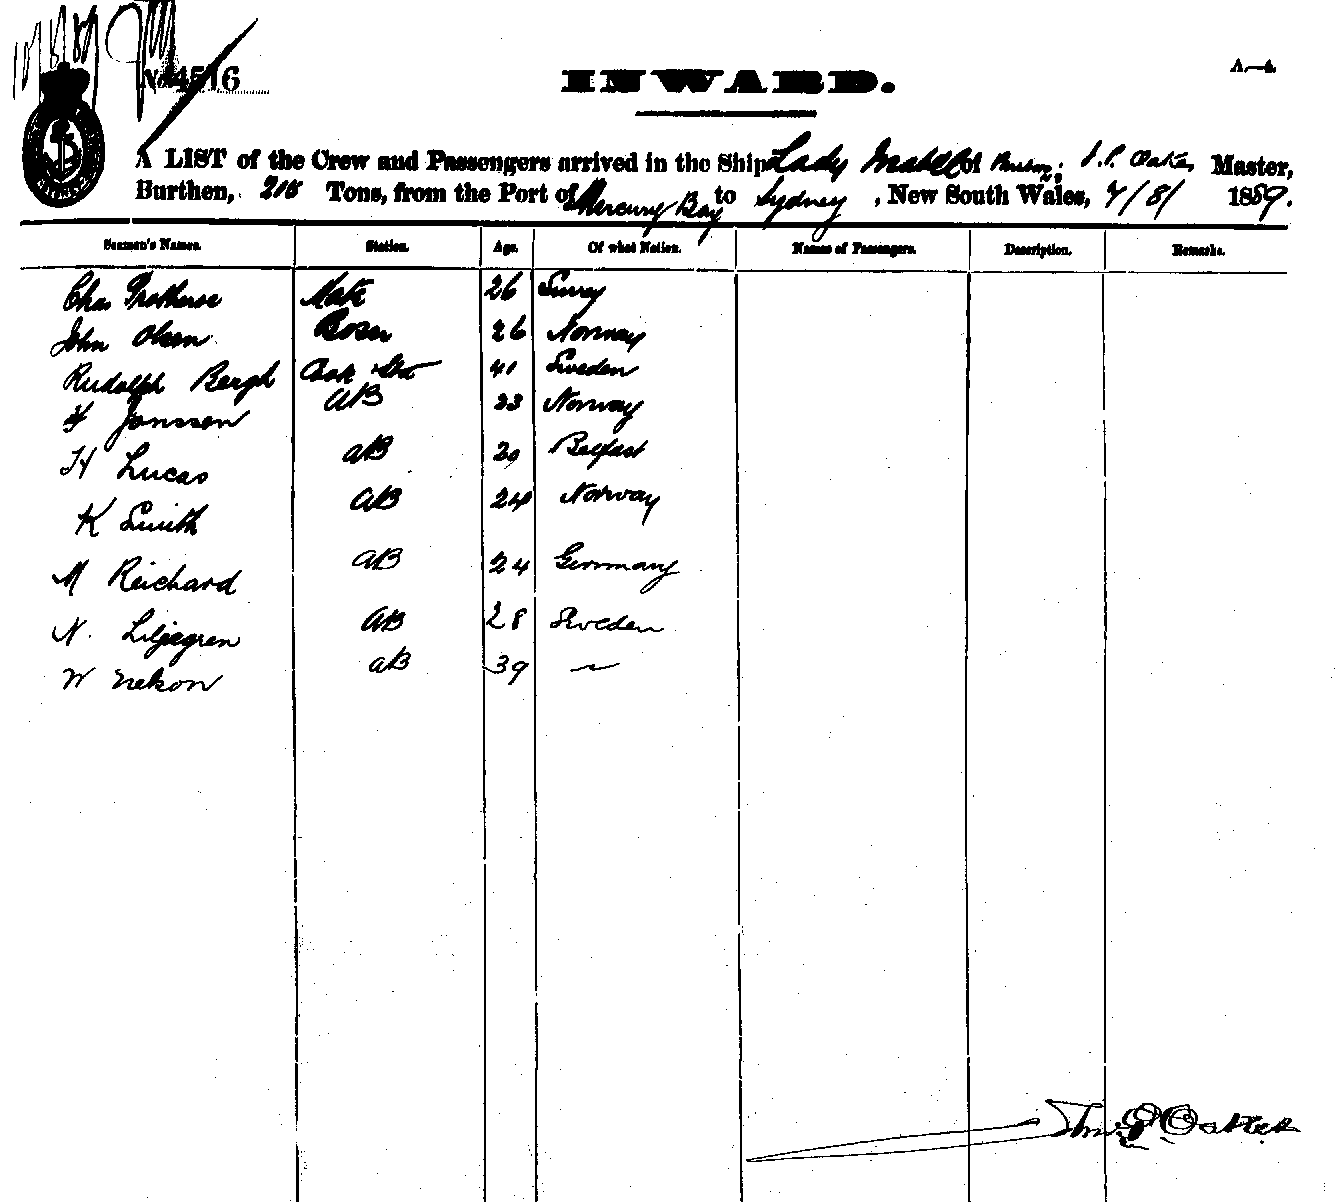 No 4516
INWARD.
A.—4.
A LIST of the Crew and Passengers arrived in the Ship Lady Mabel of J.P. Oakes Master,
Burthen, 215 Tons, from the Port of Mercury Bay to Sydney, New South Wales, 7/8/ 1889.
Seamen's Names. Station. Age. Of what Nation. Names of Passengers. Description. Remarks.
Chas Protheroe Mate 26 Surrey
John Olsen Bosn 26 Norway
Rudolph Bergh Cook Std 41 Sweden
Jonssen AB 23 Norway
H Lucas AB 20 Belfast
K Smith AB 24 Norway
M Reichard AB 24 Germany
N. Liljegren AB 28 Sweden
W Nelson AB 39 ~
Oakes